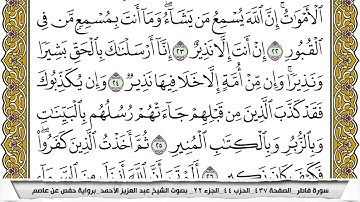 الْأَمْوَاتُ ۚ إِنَّ اللَّهَ يُسْمِعُ مَن يَشَاءُ ۖ وَمَا أَنتَ بِمُسْمِعٍ مَّن فِي
الْقُبُورِ ٢٢ إِنْ أَنتَ إِلَّا نَذِيرٌ ٢٣ إِنَّا أَرْسَلْنَاكَ بِالْحَقِّ بَشِيرًا
وَنَذِيرًا ۚ وَإِن مِّنْ أُمَّةٍ إِلَّا خَلَا فِيهَا نَذِيرٌ ٢٤ وَإِن يُكَذِّبُوكَ
فَقَدْ كَذَّبَ الَّذِينَ مِن قَبْلِهِمْ جَاءَتْهُمْ رُسُلُهُم بِالْبَيِّنَاتِ
وَبِالزُّبُرِ وَبِالْكِتَابِ الْمُنِيرِ ٢٥ ثُمَّ أَخَذْتُ الَّذِينَ كَفَرُوا ۖ
فَكَيْفَ كَانَ نَكِيرِ ٢٦ أَلَمْ تَرَ أَنَّ اللَّهَ أَنزَلَ مِنَ السَّمَاءِ
سورة فاطر _ الصفحة ٤٣٧ _ الحزب ٤٤ _ الجزء ٢٢ _ بصوت الشيخ عبد العزيز الأحمد _ برواية حفص عن عاصم